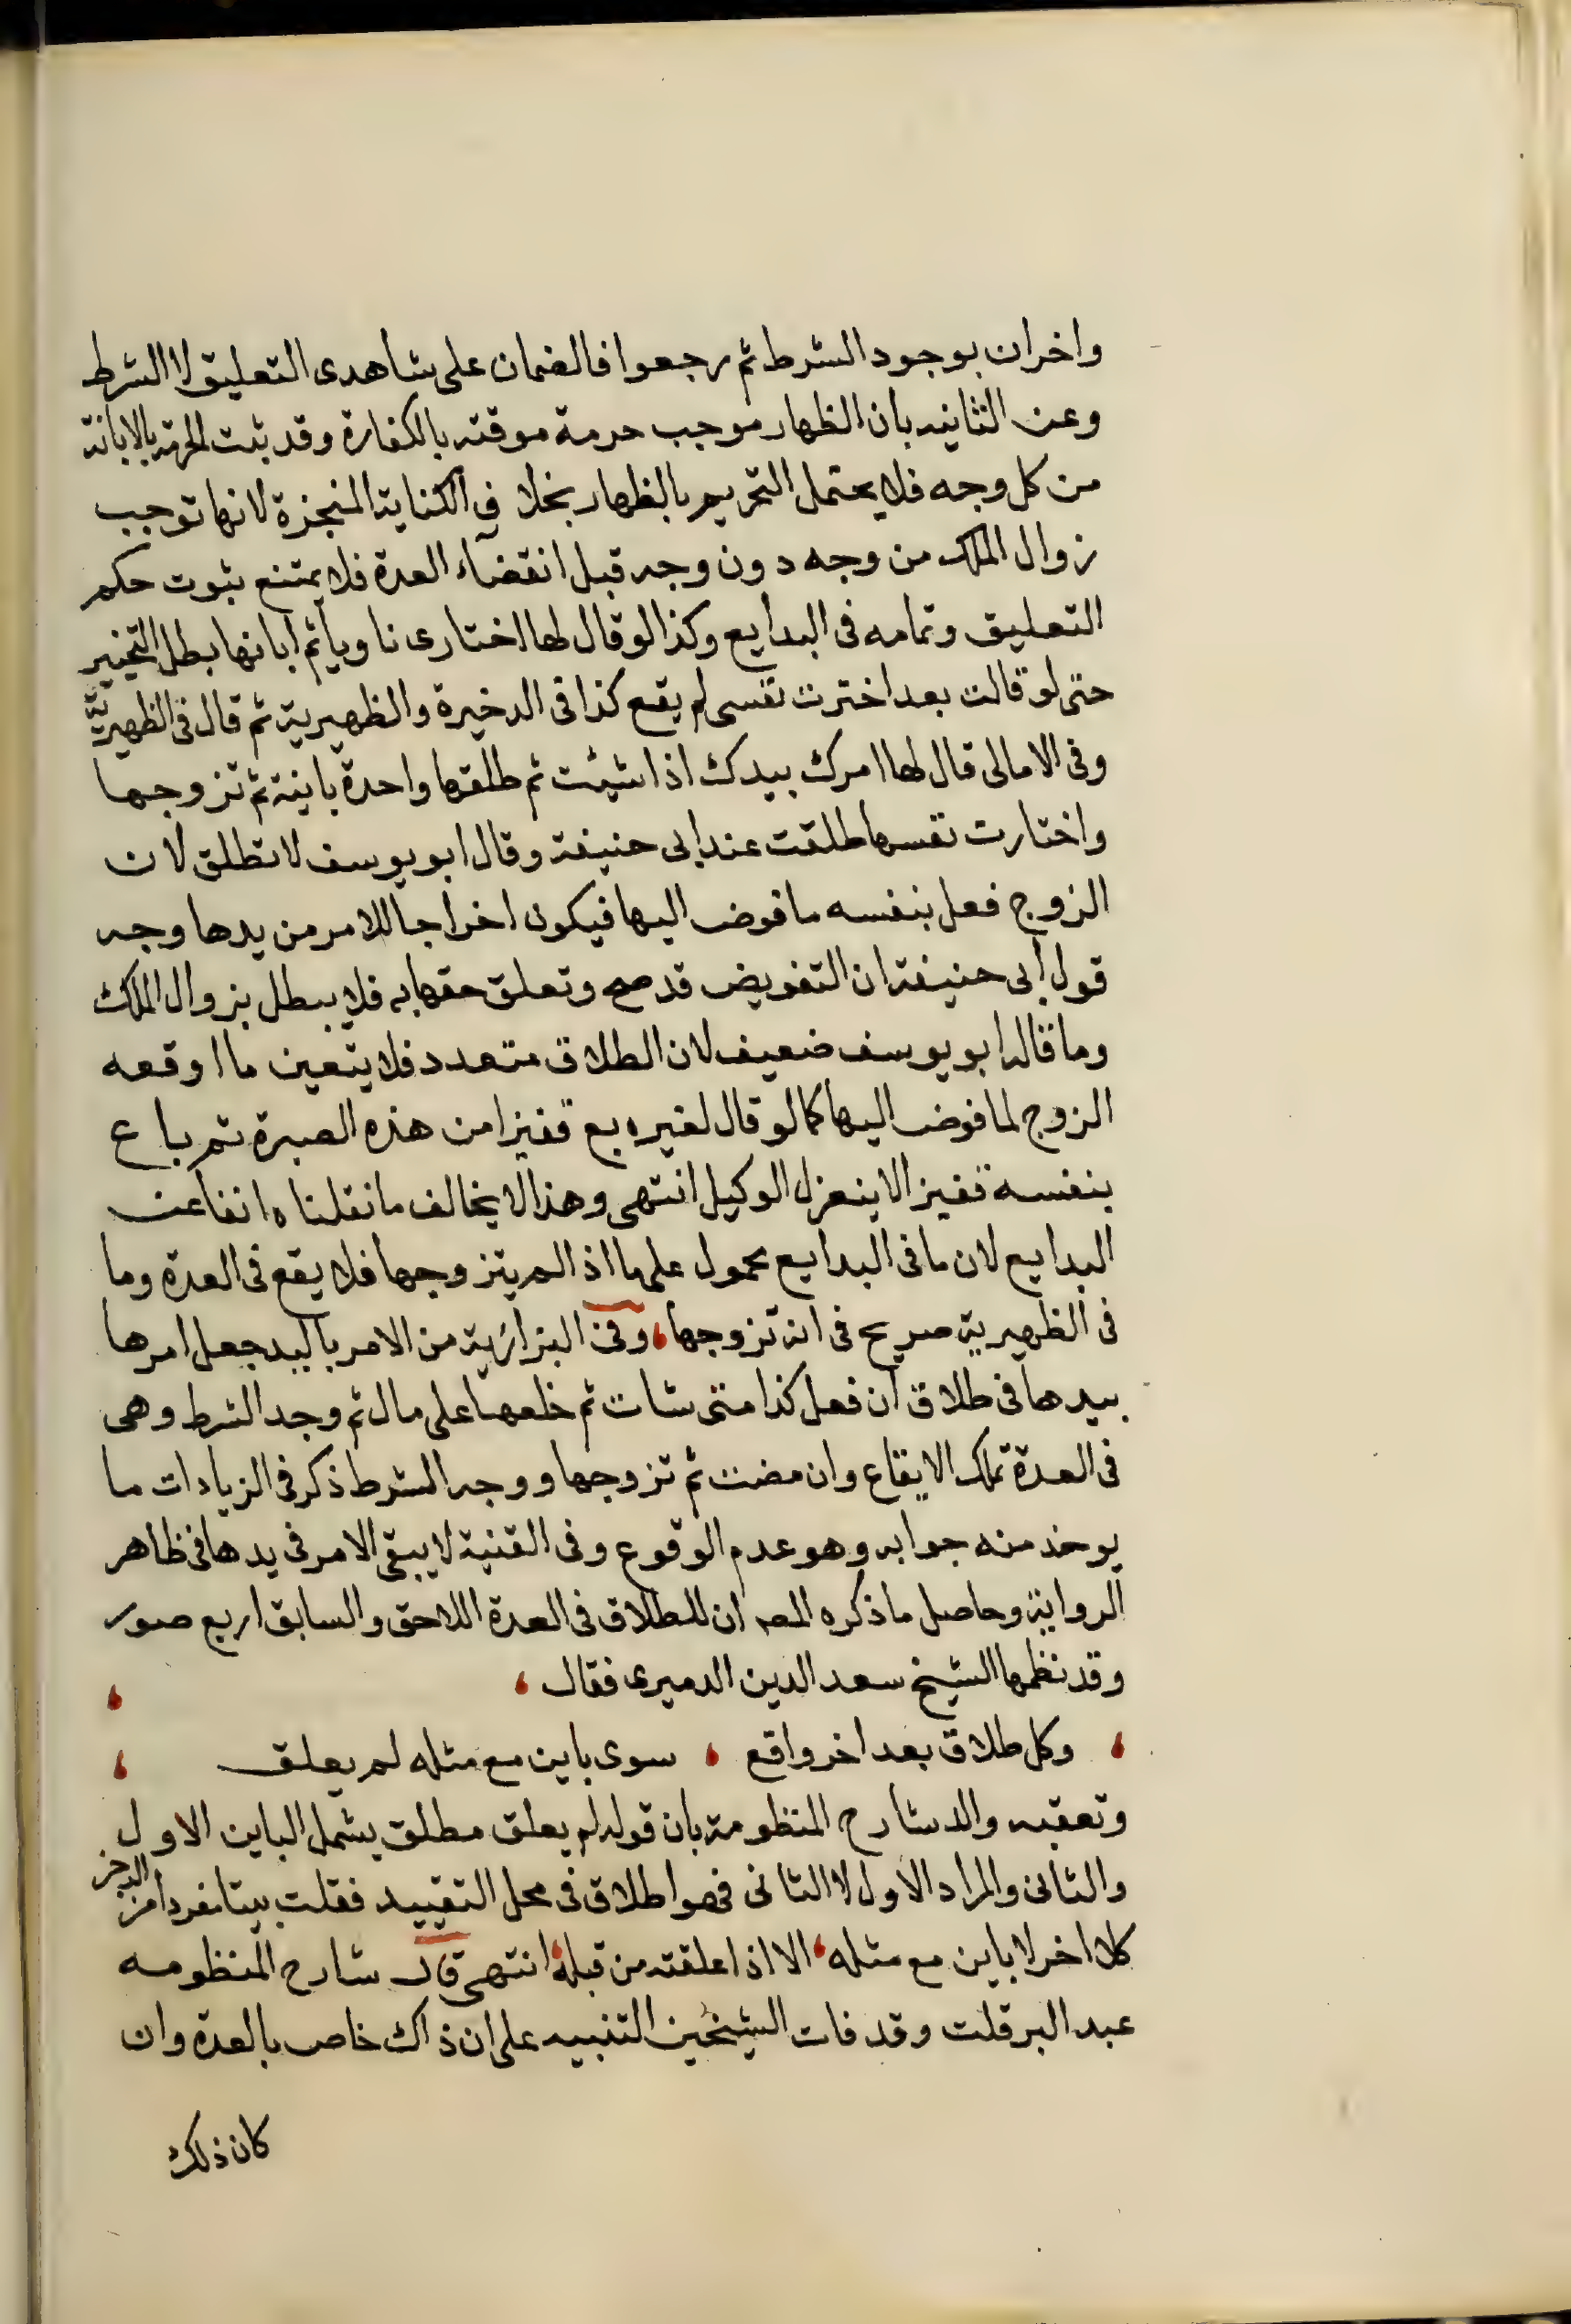 واخران بوجود الشرط ثم رجعوا فالضمان على شاهدى التعليق لا الشرط
وعن الثانيه بان الظهار موجب حرمة موقته بالكفارة وقد ثبت الحرمة بالابانة
من كل وجه فلا يحتمل التحريم بالظهار بخلاف الكناية المنجزة لانها توجب
زوال الملك من وجه دون وجه قبل انقضاء العدة فلا يمتنع ثبوت حكم
التعليق وتمامه فى البدايع وكذا لو قال لها اختارى ناويا ثم ابانها بطل التخيير
حتى لو قالت بعد اخترت نفسى لم يقع كذا فى الدخيرة والظهيرية ثم قال فى الظهيرية
وفى الامالى قال لها امرك بيدك اذا شيئت ثم طلقها واحدة باينة ثم تزوجها
واختارت نفسها طلقت عند ابى حنيفة وقال ابو يوسف لا تطلق لان
الزوج فعل بنفسه ما فوض اليها فيكون اخراجا للامر من يدها وجه
قول ابى حنيفة ان التفويض قد صح وتعلق حقها به فلا يبطل بزوال الملك
وما قاله ابو يوسف ضعيف لان الطلاق متعدد فلا يتعين ما اوقعه
الزوج لما فوض اليها كما لو قال لغيره بع قفيزا من هذه الصبرة ثم باع
بنفسه قفيزا لا ينعزل الوكيل انتهى وهذا لا يخالف ما نقلناه انفا عن
البدايع لان ما فى البدايع محمول على ما اذا لم يتزوجها فلا يقع فى العدة وما
فى الظهيرية صريح فى انه تزوجها، وفى البزازية من الامر باليد جعل امرها
بيدها فى طلاق ان فعل كذا متى شات ثم خلعها على مال ثم وجد الشرط وهى
فى العدة تملك الايقاع وان مضت ثم تزوجها ووجد الشرط ذكر فى الزيادات ما
يوخذ منه جوابه وهو عدم الوقوع وفى القنية لا يبقى الامر فى يدها فى ظاهر
الرواية وحاصل ما ذكره المصـ ان للطلاق فى العدة اللاحق والسابق اربع صور
وقد نظمها الشيخ سعد الدين الدميرى فقال ،
، وكل طلاق بعد اخر واقع ، سوى باين مع مثله لم يعلق ،
وتعقبه والد شارح المنظومة بان قوله لم يعلق مطلق يشمل الباين الاول
والثانى والمراد الاول لا الثانى فهو اطلاق فى محل التقييد فقلت بيتا مفردا من الرجز
كلا اخر لا باين مع مثله، الا اذا علقته من قبله، انتهى قال شارح المنظومه
عبد البر قلت وقد فات الشيخين التنبيه على ان ذاك خاص بالعدة وان
كان ذلك